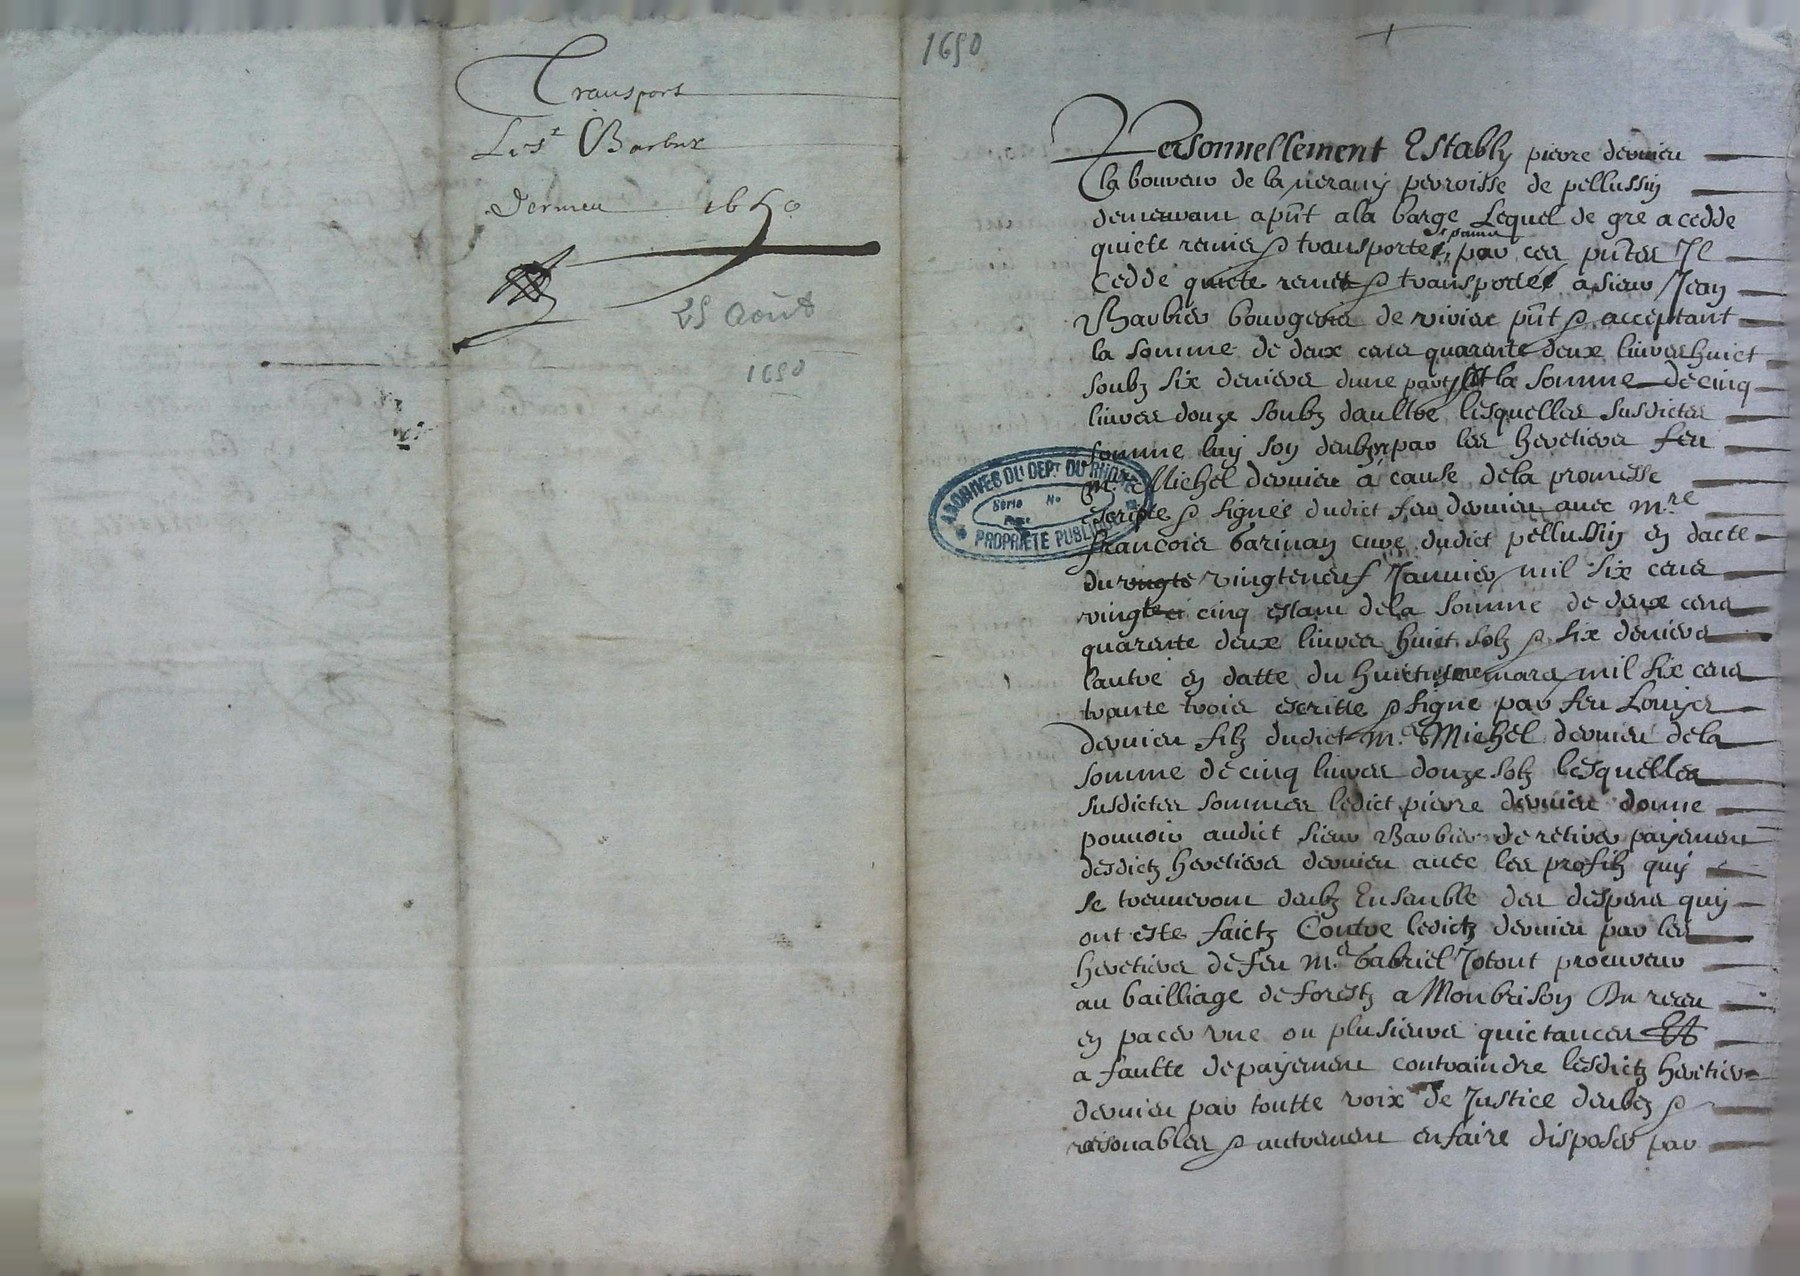 Transport
Le Sr Barbier
Dervieu 1650
25 Août
1650
1650
Personnellement Estably pierre dervieu
laboureur de la peroisse de pellussin
demeurant a pnt a la barge Lequel de gre a cedde
quicte remis & transporte, par ces pntes Il
Cedde quicte remet & transporte a sieur Jean
Barbier bourgeois de pnt & acceptant
la somme de deux cens quarante deux livres huict
soubz six deniers dune part Et la somme de cinq
livres douze soubz daultre lesquelles susdictes
somme luy son deubz par les heretiers feu
Mr Michel dervieu a cause de la promesse
escripte & signée dudict feu dervieu avec Mre
francois curé dudict pellussin en dacte
du vingte vingteneuf Janvier mil six cens
vingte cinq estant de la somme de deux cens
quarante deux livres huict solz & six deniers
lautre en datte du huictiesme mars mil six cens
trante trois escritte & signe par feu Louijs
dervieu filz dudict Mr Michel dervieu de la
somme de cinq livres douze solz lesquelles
susdictes sommes ledict pierre dervieu donne
pouvoir audict sieur Barbier de retirer payement
desdictz heretiers dervieu avec les profitz quy
se treuveront deubz Ensemble des despens quy
ont este faictz Contre ledictz dervieu par les
heretiers de feu Mr Gabriel Jotout procureur
au bailliage de forestz a Monbrison Du receu
en passer une ou plusieurs quictances Et
a faulte de payement contraindre lesdictz heretiers
dervieu par toutte voix de Justice deubes &
resonables & autrement en faire disposer par
ARCHIVES DU DEPT DU RHONE
Série No
PROPRIETE PUBLIQUE